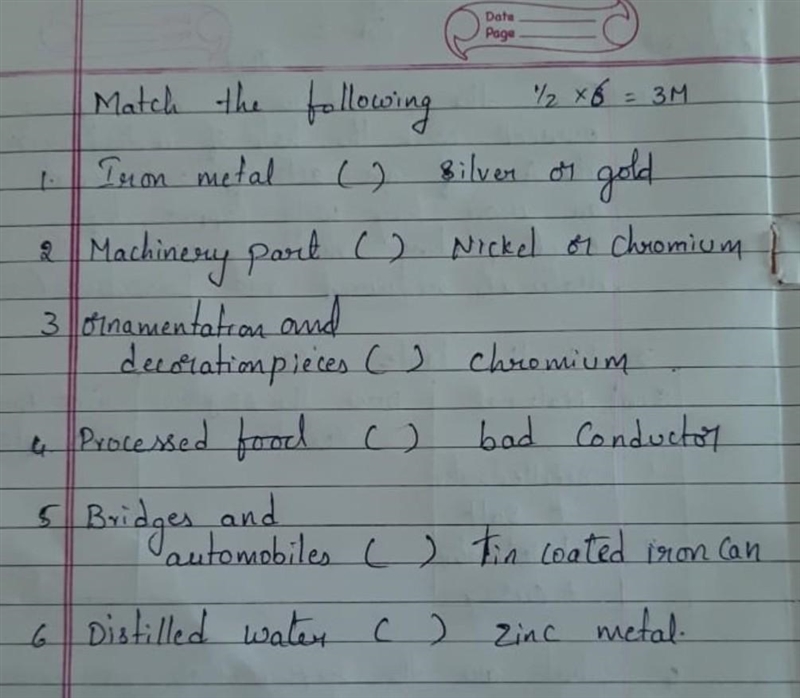 Date
Page
Match the following 1/2 × 6 = 3M
1. Iron metal ( ) Silver or gold
2 Machinery part ( ) Nickel or Chromium
3 Ornamentation and
decoration pieces ( ) Chromium
4 Processed food ( ) bad Conductor
5 Bridges and
automobiles ( ) Tin coated iron Can
6 Distilled water ( ) Zinc metal.